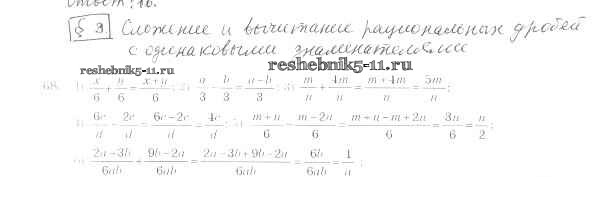 Ответ: 16.
§ 3. Сложение и вычитание рациональных дробей
с одинаковыми знаменателями
reshebnik5-11.ru reshebnik5-11.ru
68. 1) x/6 + y/6 = (x+y)/6; 2) a/3 − b/3 = (a−b)/3; 3) m/n + 4m/n = (m+4m)/n = 5m/n;
4) 6c/d − 2c/d = (6c−2c)/d = 4c/d; 5) (m+n)/6 − (m−2n)/6 = (m+n−m+2n)/6 = 3n/6 = n/2;
6) (2a−3b)/6ab + (9b−2a)/6ab = (2a−3b+9b−2a)/6ab = 6b/6ab = 1/a;